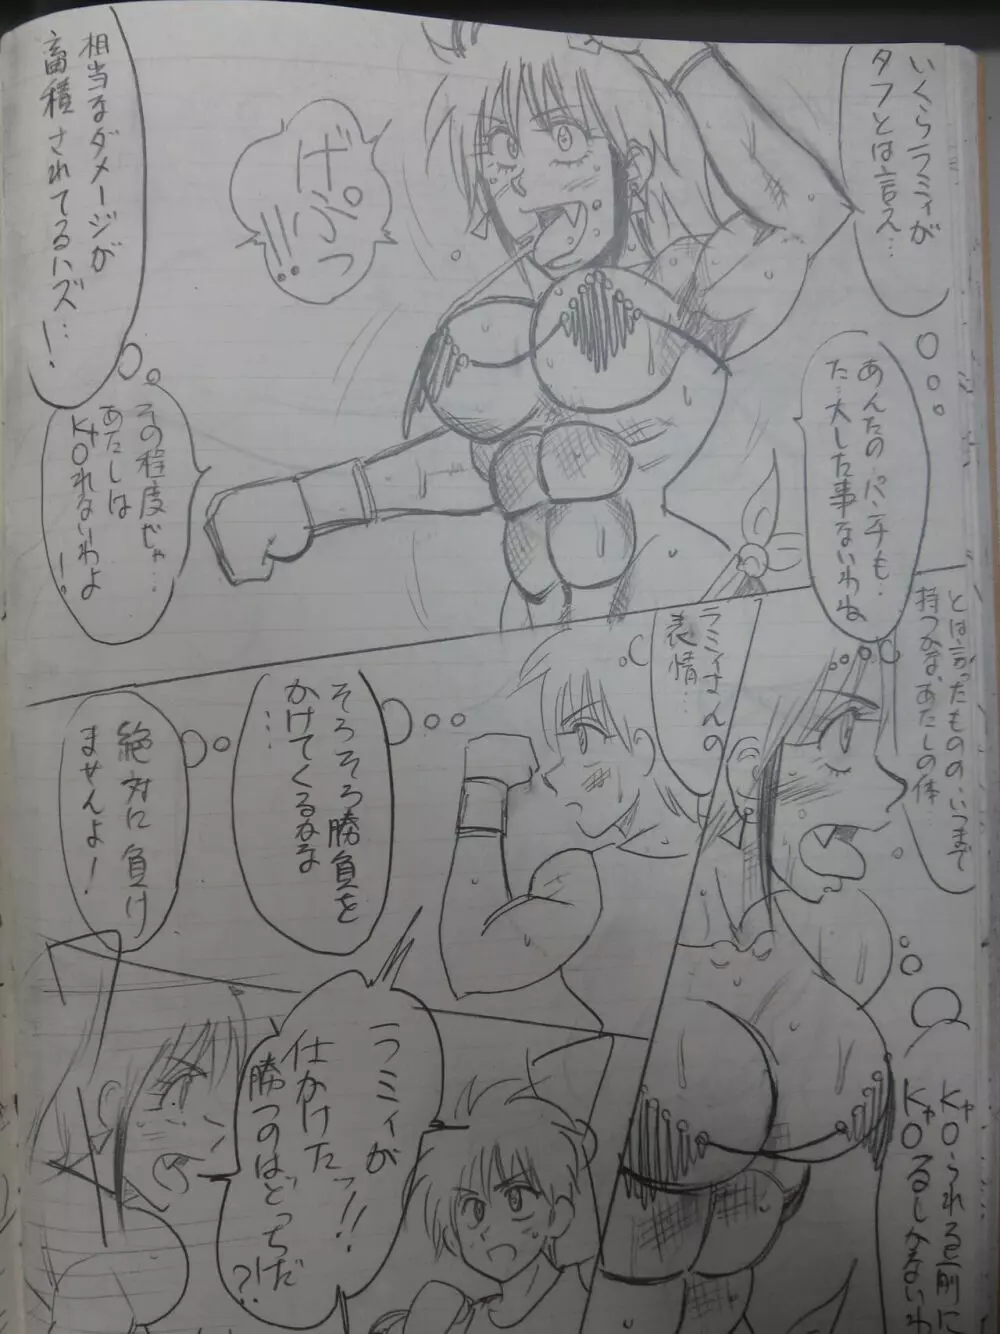 いくらラミィが
タフとは言え…
げぷっ!!
相当なダメージが
蓄積されてるハズ…!
あんたの…パンチも…
た…大した事ないわね
その程度じゃ…
あたしは
KOれないわよ!
とは言ったものの、いつまで
持つかな、あたしの体…
ラミィさんの
表情…
そろそろ勝負を
かけてくるかな
…
絶対に負け
ませんよ!
KOられる前に
KOるしかないわ
ラミィが
仕かけたーッ!!
勝つのはどっちだ
?!